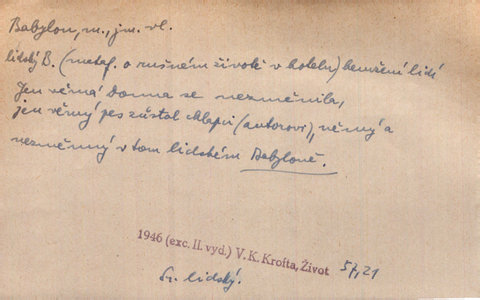 Babylon, m., jm. vl.
lidský B. (metaf. o rušném životě v hotelu) hemžení lidí
Jen věrná Donna se nezměnila,
jen věrný pes zůstal chlapci (autorovi), němý a
nezměnný v tom lidském Babyloně.
1946 (exc. II. vyd.) V. K. Krofta, Život 57, 21
Sr. lidský.